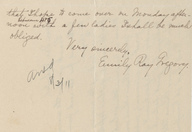 that I hope to come over on Monday after
noon with a few ladies I shall be much
obliged.
Very sincerely,
Emily Ray Gregory